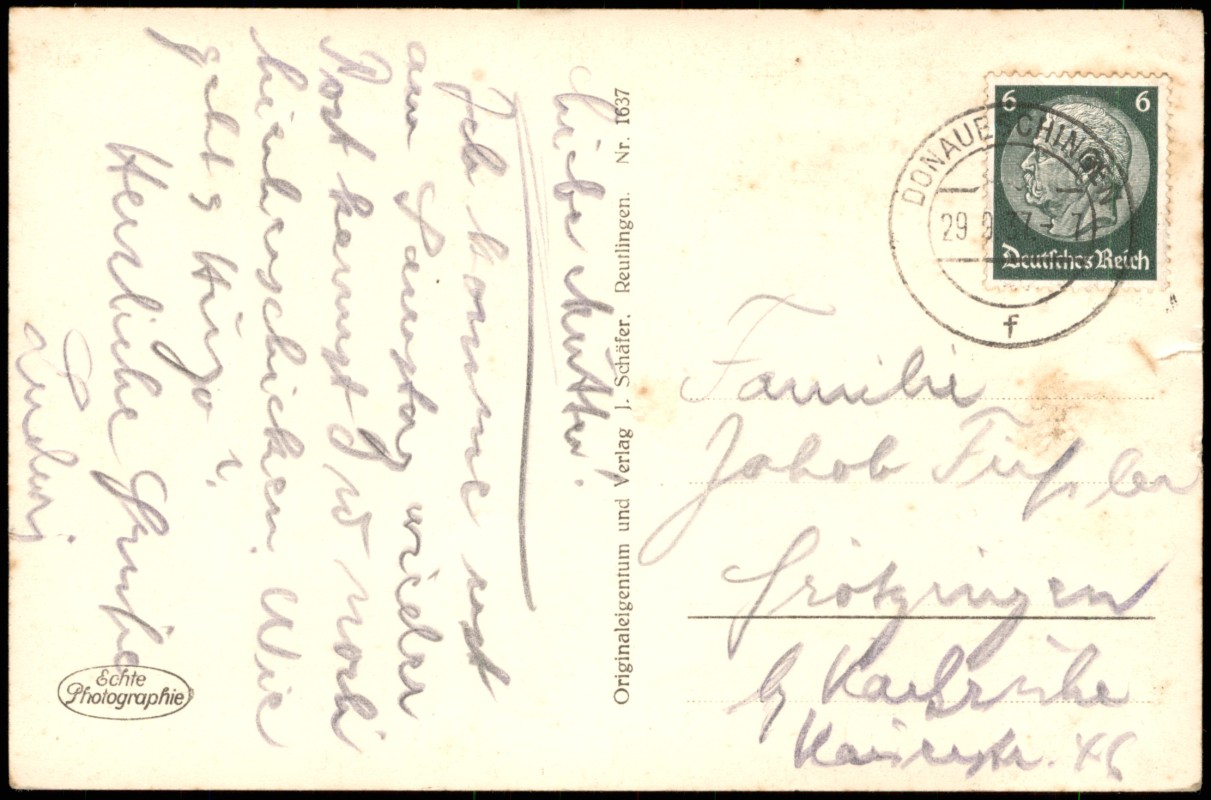 Liebe Mutter!
Ich komme erst
am Samstag wieder
Post kannst Du noch
hierherschicken. Wie
geht's Hugo?
Herzliche Grüße
Ludwig
Echte
Photographie
Originaleigentum und Verlag J. Schäfer. Reutlingen. Nr. 1637
6 6
Deutsches Reich
DONAUESCHINGEN
29 37
f
Familie
Jakob
Grötzingen
b/ Karlsruhe
Kaiserstr.